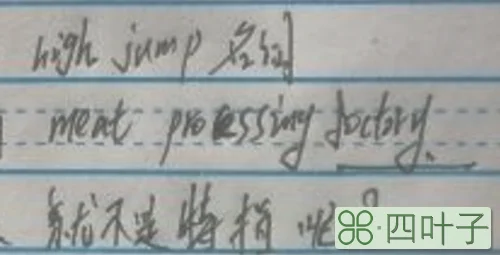 high jump 名词
meat processing factory.
、就不是特指呢?
⌘·四叶子